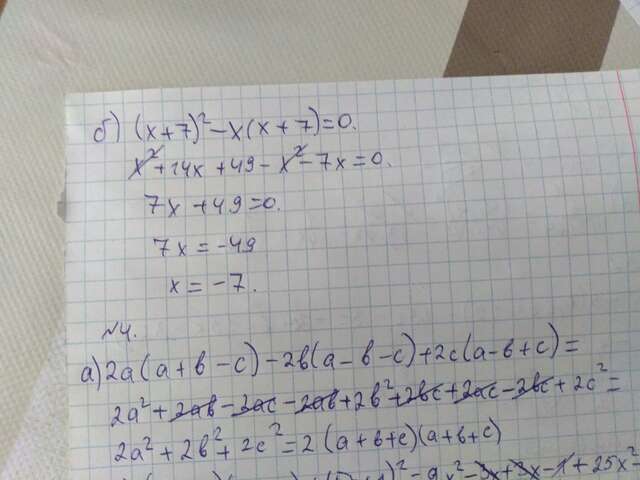 б) (x+7)²-x(x+7)=0.
x²+14x+49-x²-7x=0.
7x+49=0.
7x=-49
x=-7.
№4.
а) 2a(a+b-c)-2b(a-b-c)+2c(a-b+c)=
2a²+2ab-2ac-2ab+2b²+2bc+2ac-2bc+2c²=
2a²+2b²+2c²=2(a+b+c)(a+b+c)
)²-9x²-3x+3x-1+25x²-